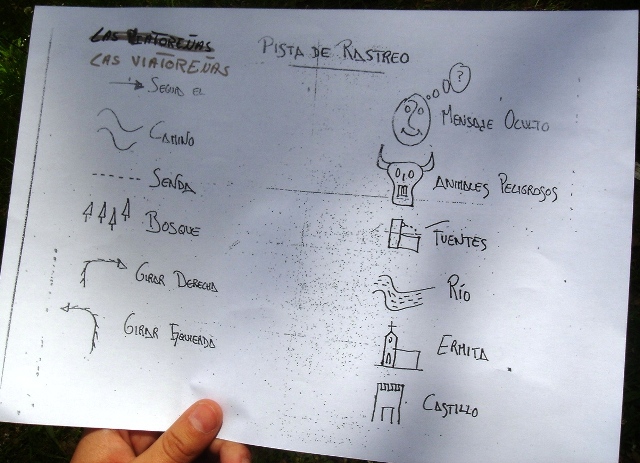 LAS VIATOREÑAS
LAS VIATOREÑAS
PISTA DE RASTREO
SEGUIR EL
CAMINO
SENDA
BOSQUE
GIRAR DERECHA
GIRAR IZQUIERDA
?
MENSAJE OCULTO
ANIMALES PELIGROSOS
FUENTES
RÍO
ERMITA
CASTILLO